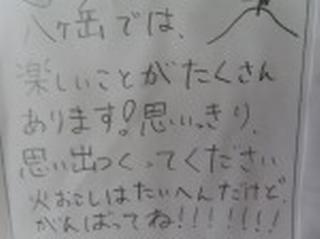 八ヶ岳では、
楽しいことがたくさん
あります!思いっきり、
思い出つくってください
火おこしはたいへんだけど、
がんばってね!!!!!!!